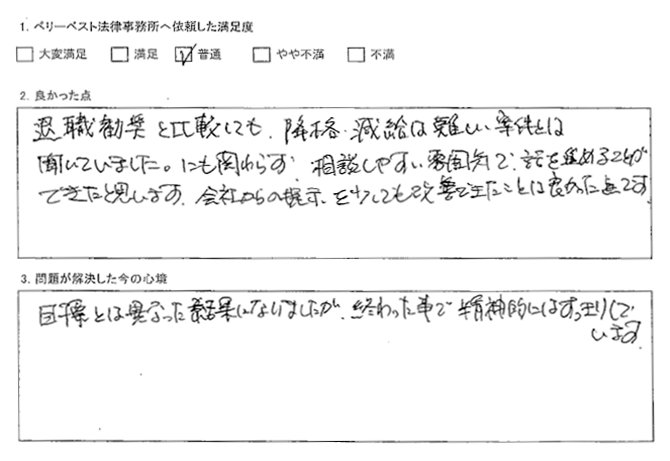 1. ベリーベスト法律事務所へ依頼した満足度
□ 大変満足 □ 満足 ☑ 普通 □ やや不満 □ 不満
2. 良かった点
退職勧奨と比較しても、降格・減給は難しい案件とは
聞いていました。にも関わらず、相談しやすい雰囲気で、話を進めることが
できたと思います。会社からの提示を少しでも改善できたことは良かった点です
3. 問題が解決した今の心境
目標とは異なった結果になりましたが、終わった事で精神的にはすっきりして
います。